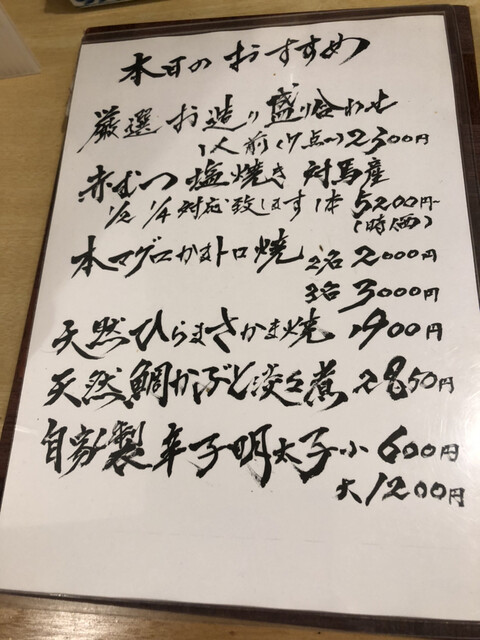 本日のおすすめ
厳選 お造り 盛り合わせ
1人前(7点〜)2300円
赤むつ 塩焼き 対馬産
1/2 1/4 対応致します 1本 5200円〜
(時価)
本マグロかまトロ焼 2名 2000円
3名 3000円
天然ひらまさかま焼 1900円
天然鯛かぶと淡々煮 2850円
自家製 辛子明太子 小 600円
大 1200円